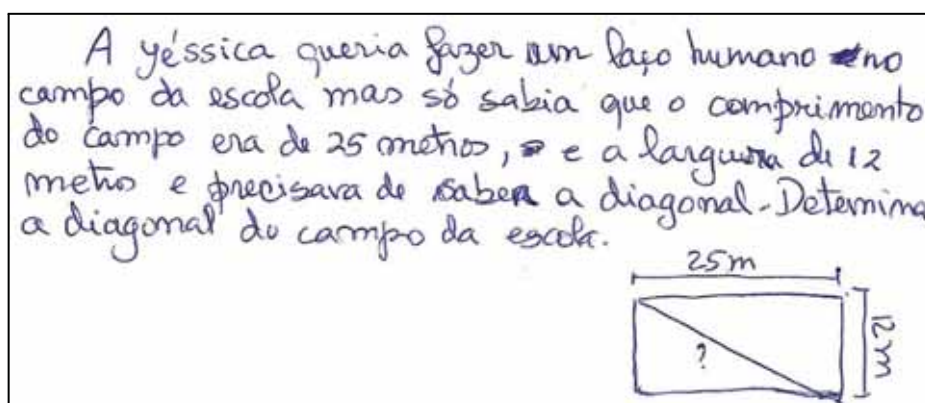 A yéssica queria fazer um laço humano no
campo da escola mas só sabia que o comprimento
do campo era de 25 metros, e a largura de 12
metro e precisava de saber a diagonal. Determina
a diagonal du campo da escola.
25m
12m
?